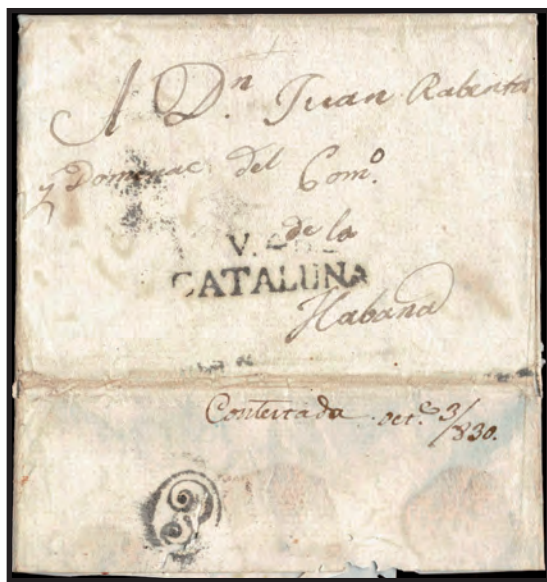 A Dn. Juan Rabentos
y Domenac del Como.
de la
CATALUÑA
Habana
Contestada Oct.e 3/830.